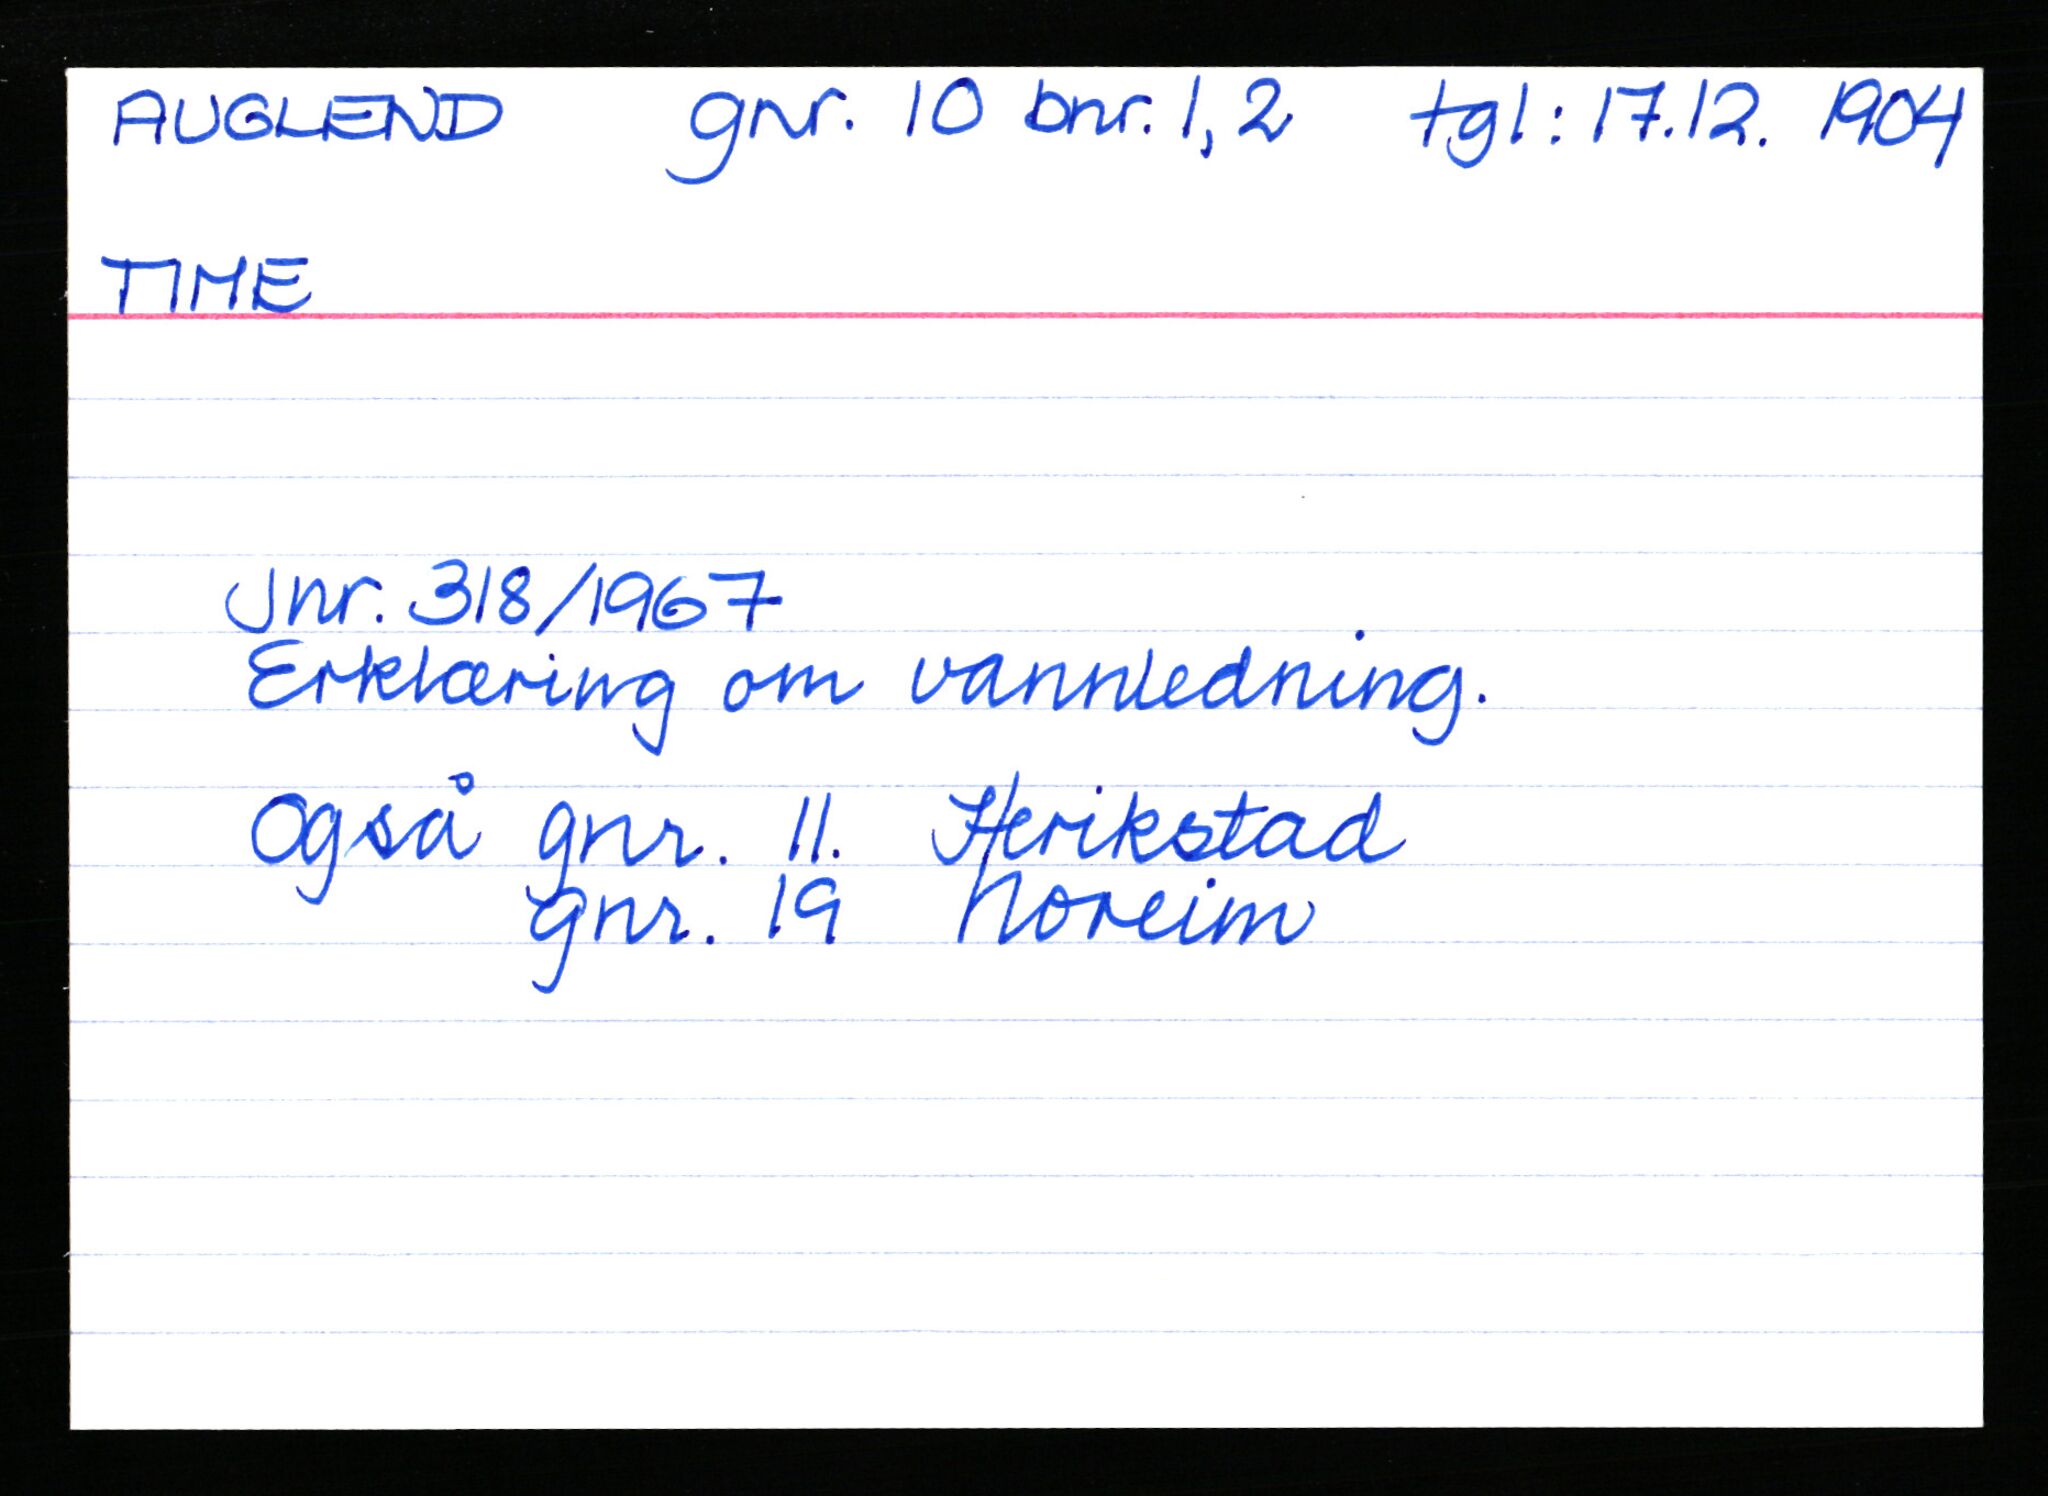 AUGLEND gnr. 10 bnr. 1, 2 tgl: 17.12. 1904
TIME
Jnr. 318/1967
Erklæring om vannledning.
Også gnr. 11. Herikstad
gnr. 19 Noreim